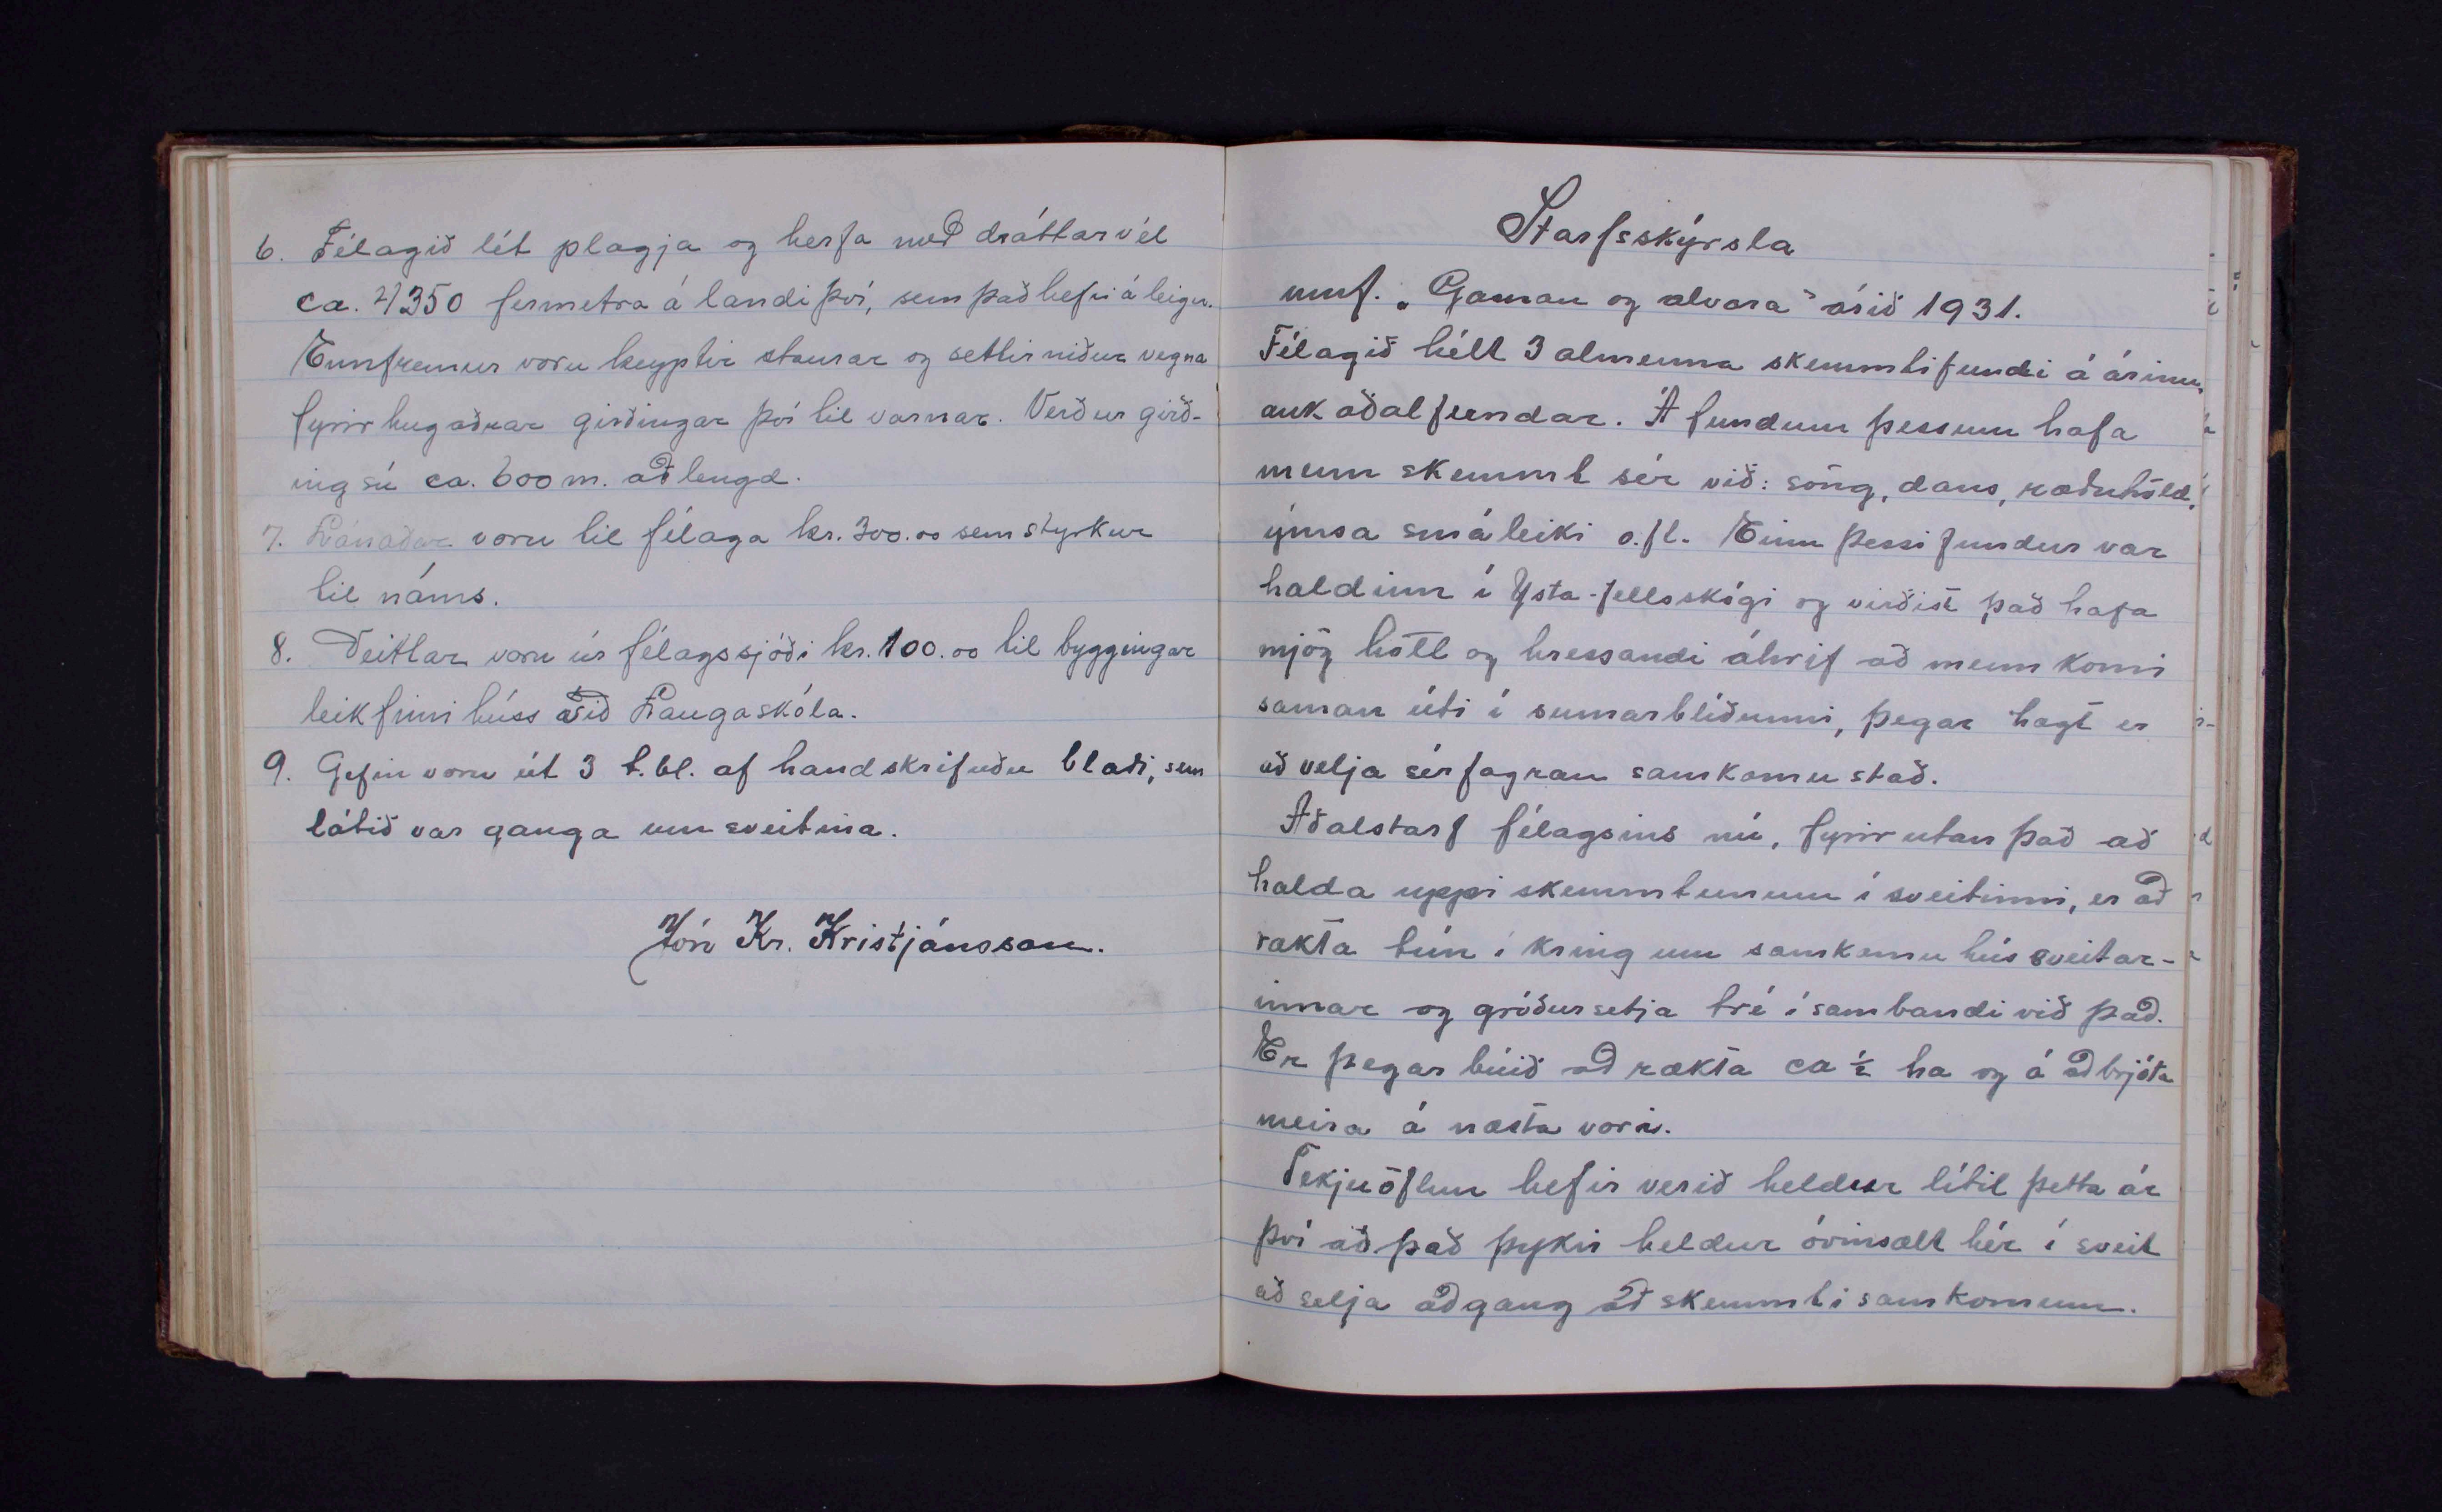 6. Félagið lét plægja og herfa með dráttarvél
ca. 4350 fermetra á landi því, sem það hefir á leigu.
Ennfremur voru keyptir staurar og settir niður vegna
fyrirhugaðrar girðingar því til varnar. Verður girð-
ing sú ca. 600 m. að lengd.
7. Lánaðar voru til félaga kr. 300.00 sem styrkur
til náms.
8. Veittar voru úr félagssjóði kr. 100.00 til byggingar
leikfimihúss við Laugaskóla.
9. Gefin voru út 3 t.bl. af handskrifuðu blaði, sem
látið var ganga um sveitina.
Jón Kr. Kristjánsson.
Starfsskýrsla
umf. „Gaman og alvara" árið 1931.
Félagið hélt 3 almenna skemmtifundi á árinu,
auk aðalfundar. Á fundum þessum hafa
menn skemmt sér við: söng, dans, ræðuhöld,
ýmsa smáleiki o.fl. Einn þessi fundur var
haldinn í Ysta-fellsskógi og virðist það hafa
mjög holl og hressandi áhrif að menn komi
saman úti í sumarblíðunni, þegar hægt er
að velja sér fagran samkomustað.
Aðalstarf félagsins nú, fyrir utan það að
halda uppi skemmtunum í sveitinni, er að
rækta tún í kring um samkomuhús sveitar-
innar og gróðursetja tré í sambandi við það.
Er þegar búið að rækta ca ½ ha og á að brjóta
meira á næsta vori.
Tekjuöflun hefir verið heldur lítil þetta ár
því að það þykir heldur óvinsælt hér í sveit
að selja aðgang að skemmtisamkomum.